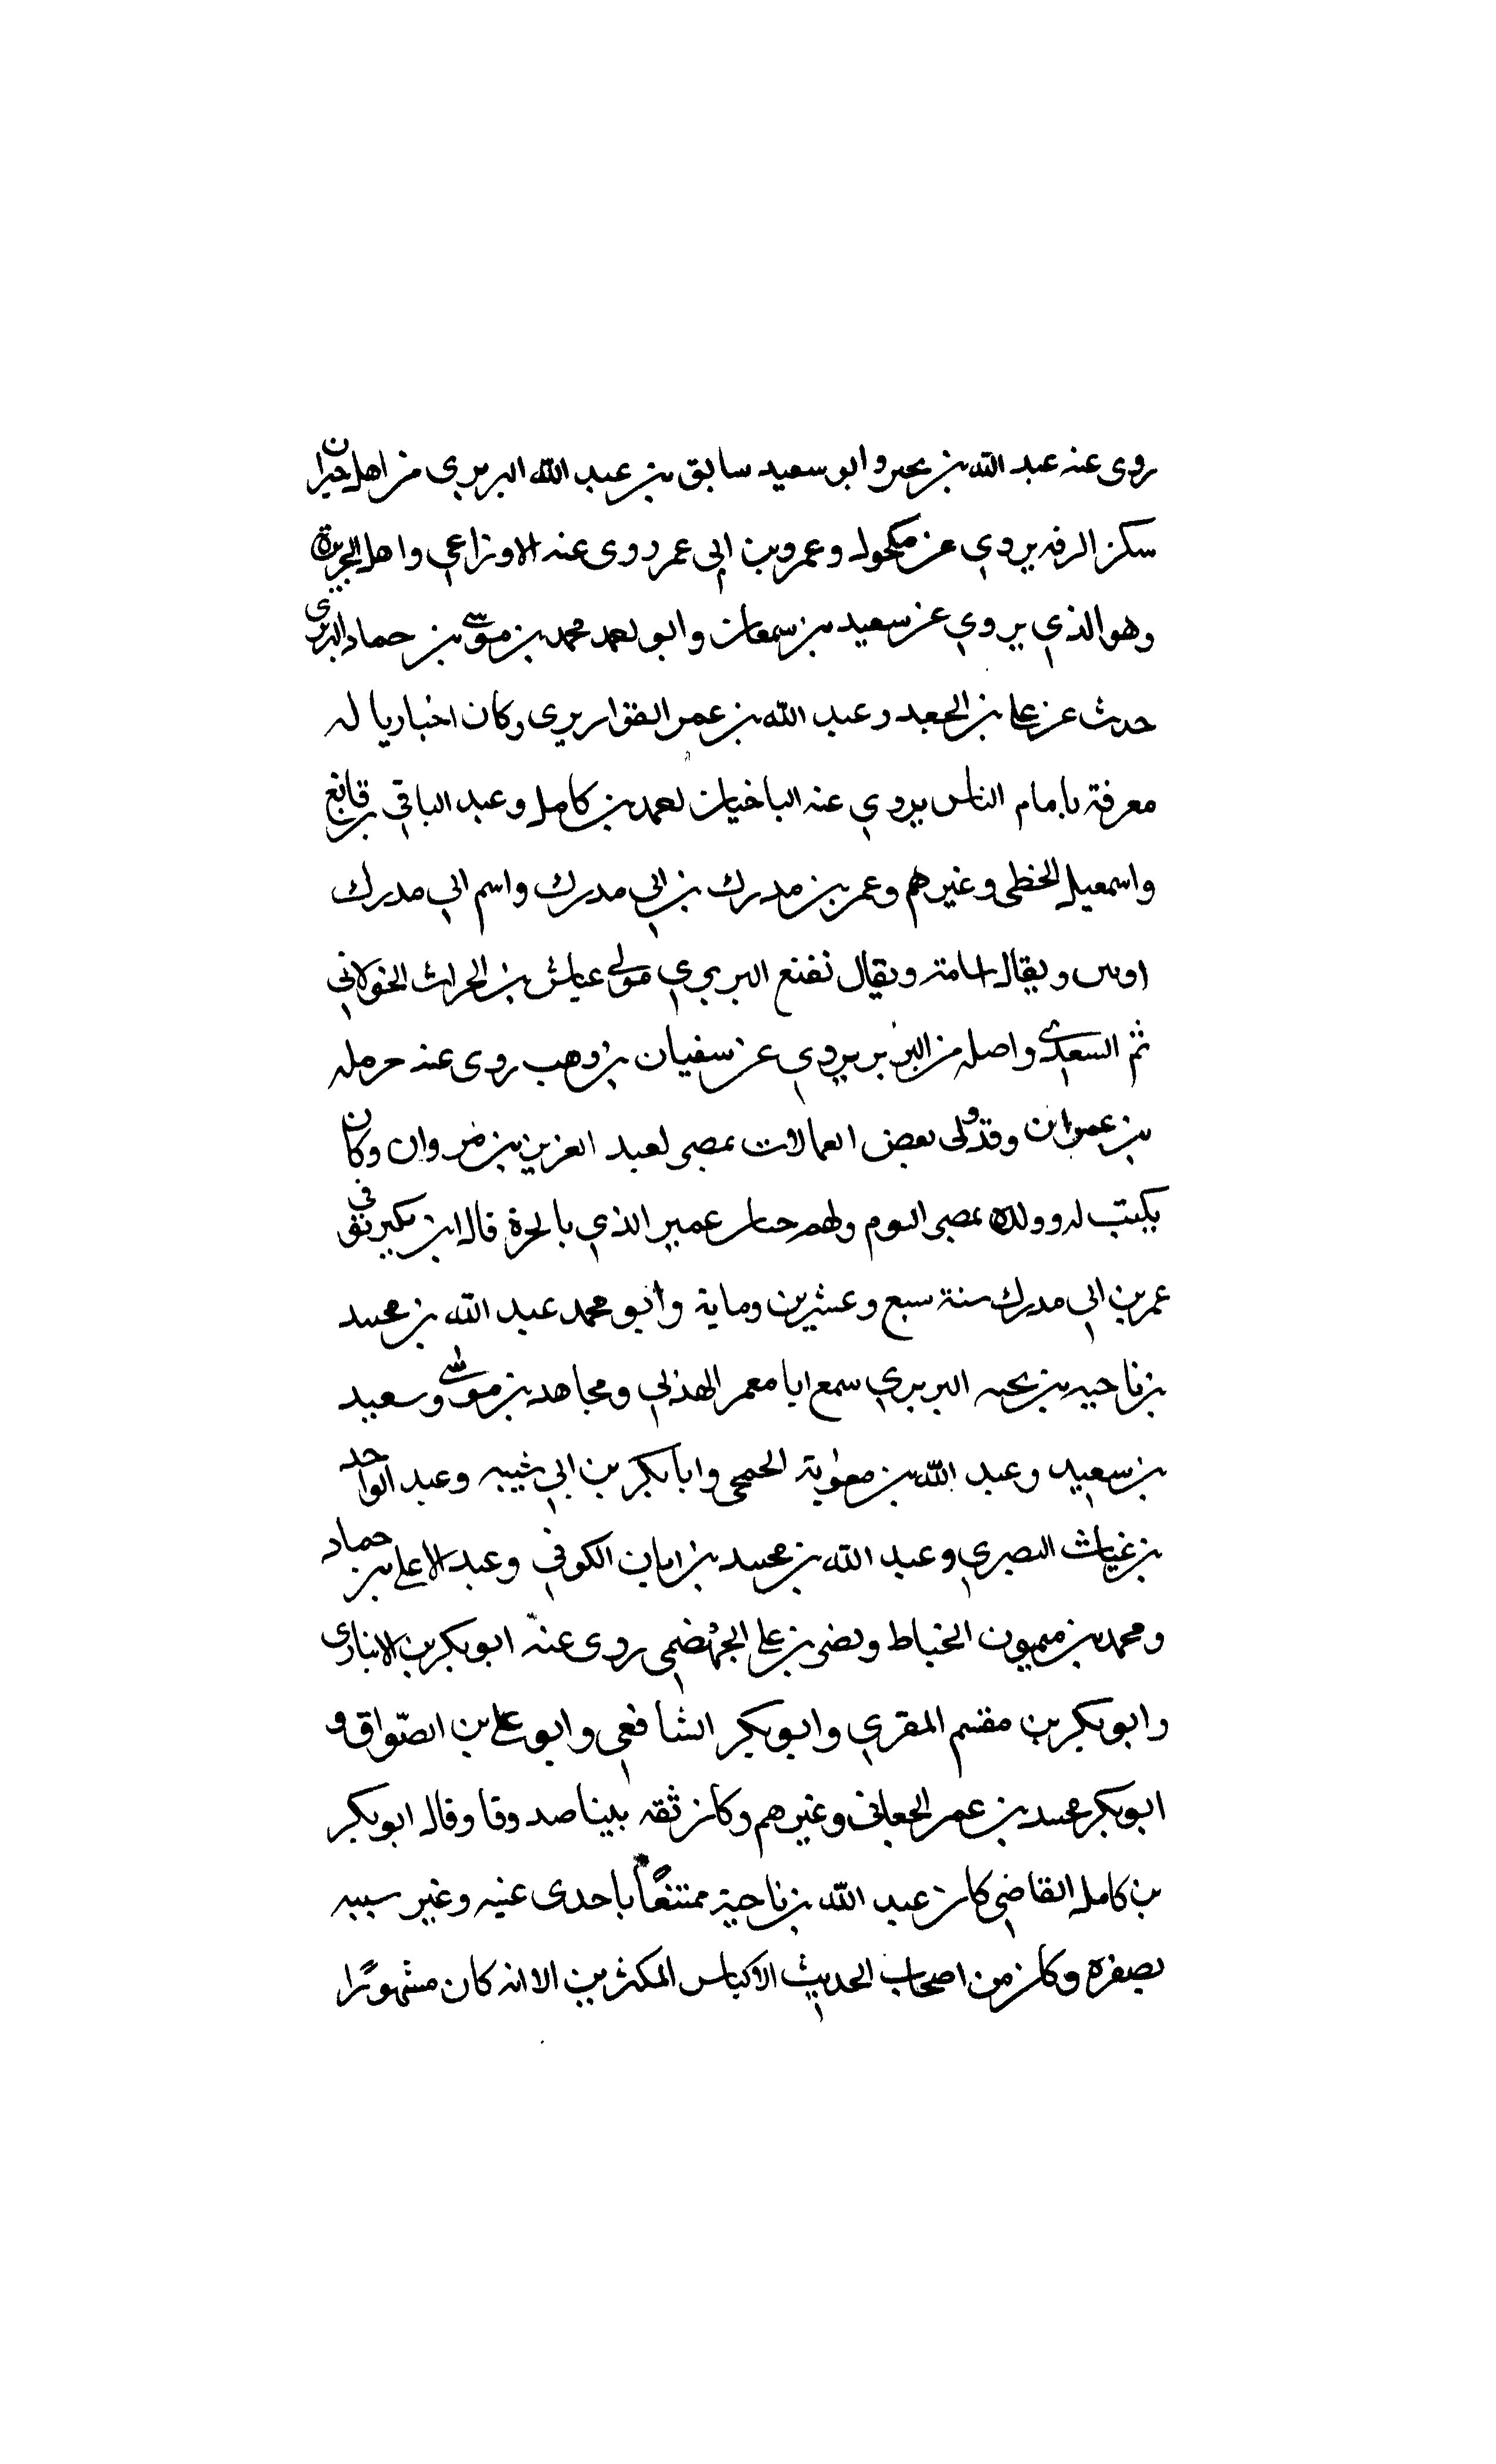 روى عنه عبد الله بن بحير وابو سعيد سابق بن عبد الله البربري من اهل حران
سكن الرقه يروي عن مكحول وعمرو بن ابي عمر روى عنه الاوزاعي واهل الجزيرة
وهو الذي يروي عن سعيد بن سمعان وابو احمد محمد بن موسى بن حماد البربري
حدث عن علي بن الجعد وعبد الله بن عمر القواريري وكان اخباريا له
معرفة بايام الناس يروي عنه الباخيان احمد بن كامل وعبد الباقي بن قانع
واسمعيل الخطبى وغيرهم وعمر بن مدرك بن ابي مدرك واسم ابي مدرك
اوس ويقال اسامة ويقال نفنع البربري مولى عياش بن الحراث الخولاني
ثم السعدى واصله من البربر يروي عن سفيان بن وهب روى عنه حرمله
بن عمران وقد ولى بعض العمالات بمصر لعبد العزيز بن مروان وكان
يكتب له وولده بمصر اليوم ولهم عمير الذي بالحرة قال ابن بكير توفي
عمر بن ابي مدرك سنة سبع وعشرين وماية وابو محمد عبد الله بن محمد
بن ناحيه بن نجبه البربري سمع ابا معمر الهذلي ومجاهد بن موسى وسعيد
بن سعيد وعبد الله بن معوية الجمحى وابا بكر بن ابي شيبه وعبد الواحد
بن غياث البصري وعبد الله بن محمد بن ابان الكوفي وعبد الاعلى بن حماد
ومحمد بن ميمون الخياط ونصر بن علي الجهضمي روى عنه ابو بكر بن الانبارى
وابو بكر بن مقسم المقري وابو بكر الشافعي وابو علي بن الصواق و
ابو بكر محمد بن عمر الجعابي وغيرهم وكان ثقه بينا صدوقا وقال ابو بكر
بن كامل القاضي كان عبد الله بن ناحية ممتنعًا باحدى عنيه وغير سببه
بصفره وكان من اصحاب الحديث الاكياس المكثرين الا انه كان مشهورًا